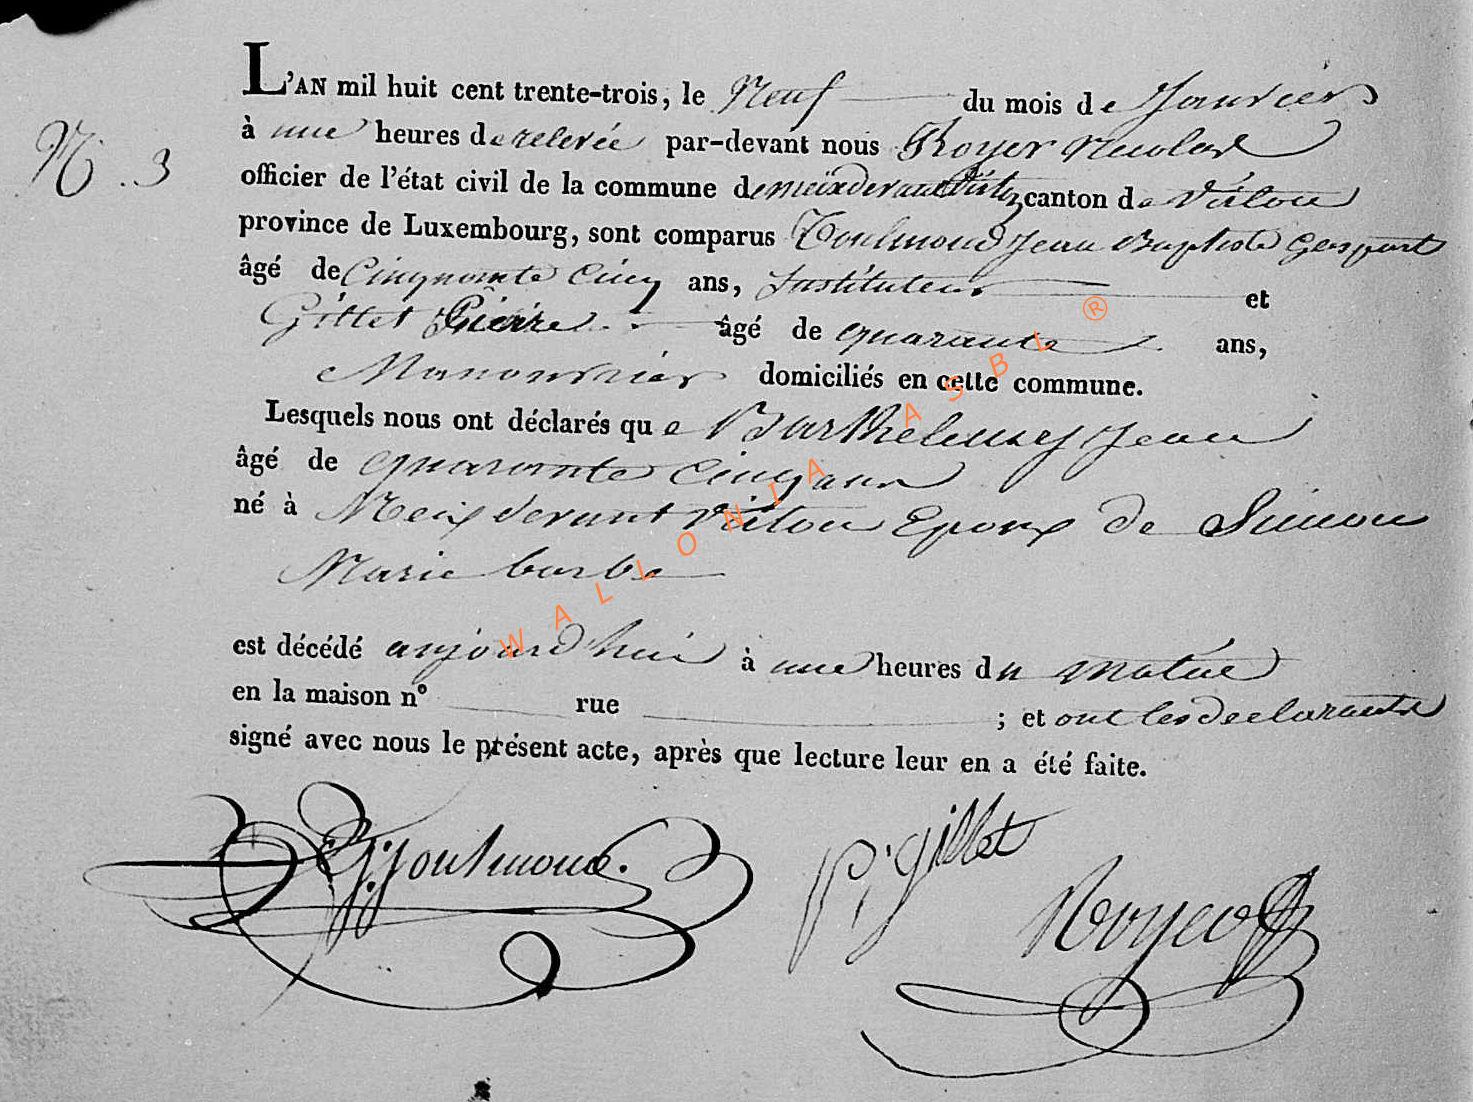 L'AN mil huit cent trente-trois, le Neuf du mois de Janvier
N. 3
à une heures de relevée par-devant nous Royer Nicolas
officier de l'état civil de la commune de meix devant Virton canton de Virton
province de Luxembourg, sont comparus Toulmond Jean Baptiste Gaspart
âgé de Cinquante Cinq ans, Instituteur et
Gillet Pierre âgé de quarante ans,
Manouvrier domiciliés en cette commune.
Lesquels nous ont déclarés que Barthelemy Jean
âgé de quarante Cinq ans
né à Meix devant Virton Epoux de Simon
Marie barbe
est décédé aujourd'hui à une heures du matin
en la maison n° rue ; et ont les declarants
signé avec nous le présent acte, après que lecture leur en a été faite.
Toulmond. P. gillet
Royer
WALLONIA ASBL ®